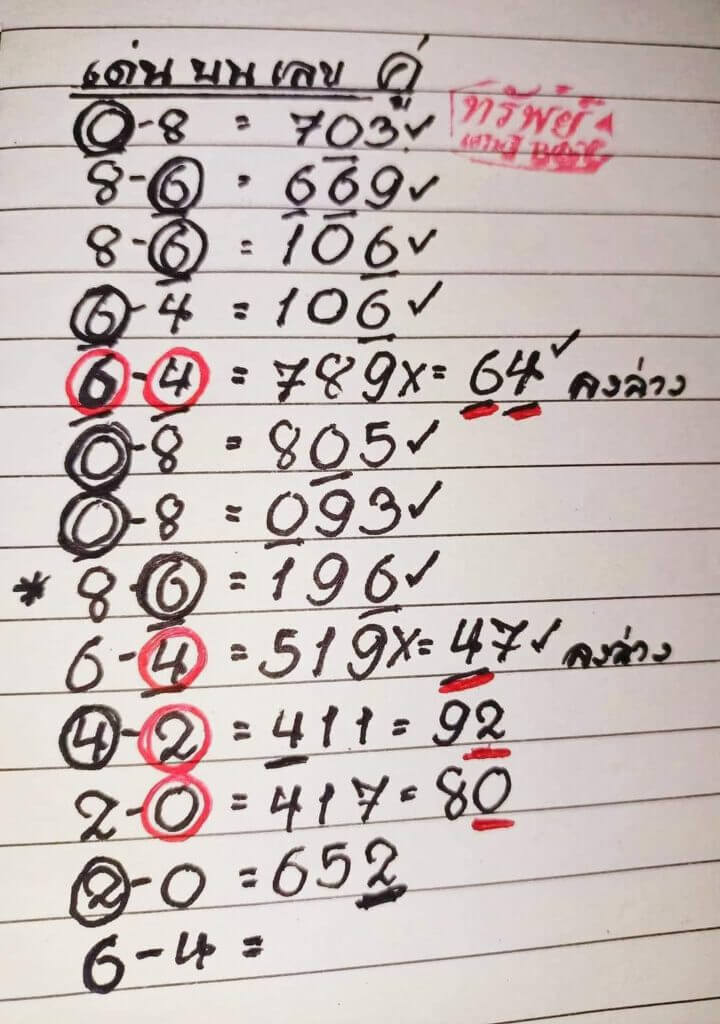 เด่น บน เลข คู่
ทรัพย์
0-8 = 703✓
8-6 = 669✓
8-6 = 106✓
6-4 = 106✓
6-4 = 789x= 64✓ ลงล่าง
0-8 = 805✓
0-8 = 093✓
* 8-6 = 196✓
6-4 = 519x= 47✓ ลงล่าง
4-2 = 411 = 92
2-0 = 417= 80
2-0 = 652
6-4 =